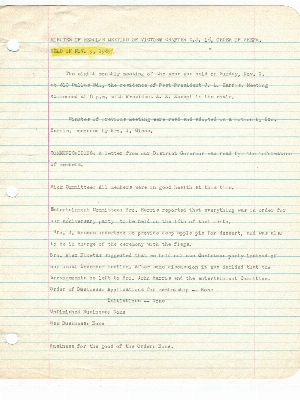 MINUTES OF REGULAR MEETING OF VICTORY CHAPTER NO. ORDER OF AHEPA,
HELD ON NOV. 2,
The eight monthly meeting of the year was held on Sunday, Nov. 2,
at 610 Dallas Rd., the residence of Past President J. L. Harris. Meeting
commenced at 8 p.m. with President in the chair.
Minutes of previous meeting were read and adopted on a motion by Bro.
seconded by Bro. J.
COMMUNICATIONS: A letter from our District Governor was read for the information
of members.
Sick Committee: All members were in good health at this time.
Entertainment Committee: Bro. Harris reported that everything was in order for
our anniversary party, to be held on the 16th of this month.
Bro. J. undertook to provide apple pie for dessert, and was also
to be in charge of the ceremony with the flags.
Bro. Alex suggested that we hold our own Christmas party instead of
our usual December meeting. After some discussion it was decided that the
arrangements be left to Bro. John Harris and the entertainment Committee.
Order of Business: Applications for membership -- None
Initiations -- None
Unfinished Business: None
New Business: None
Business for the good of the Order: None.